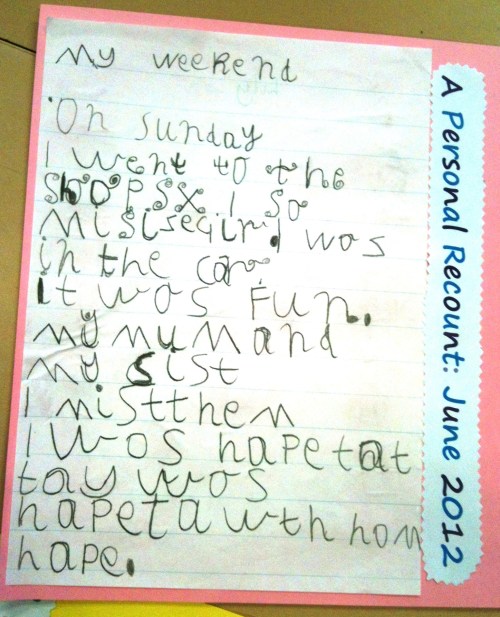 My weekend
On Sunday
I went to the
shopsx. I so
Misisegirl wos
in the car.
it wos Fun.
my mum and
my sist
I mistthem
I wos hapetat
tay wos
hapeta wth hom
hape.
A Personal Recount: June 2012